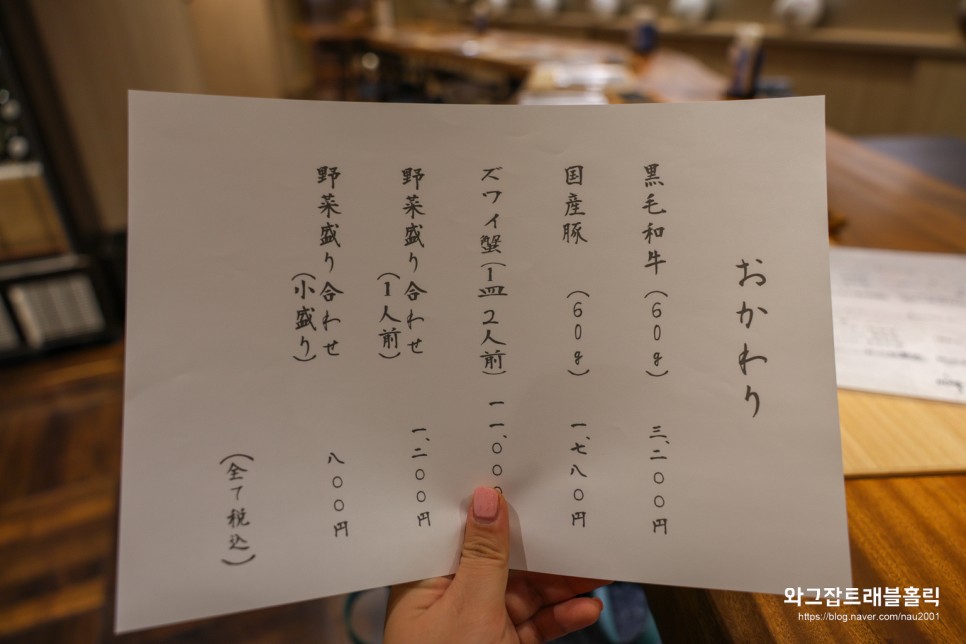 おかわり
黒毛和牛(60g) 三、二〇〇円
国産豚 (60g) 一、七八〇円
ズワイ蟹(1皿2人前) 一一、〇〇
野菜盛り合わせ
(1人前) 一、二〇〇円
野菜盛り合わせ
(小盛り) 八〇〇円
(全て税込)
와그잡트래블홀릭
https://blog.naver.com/nau2001